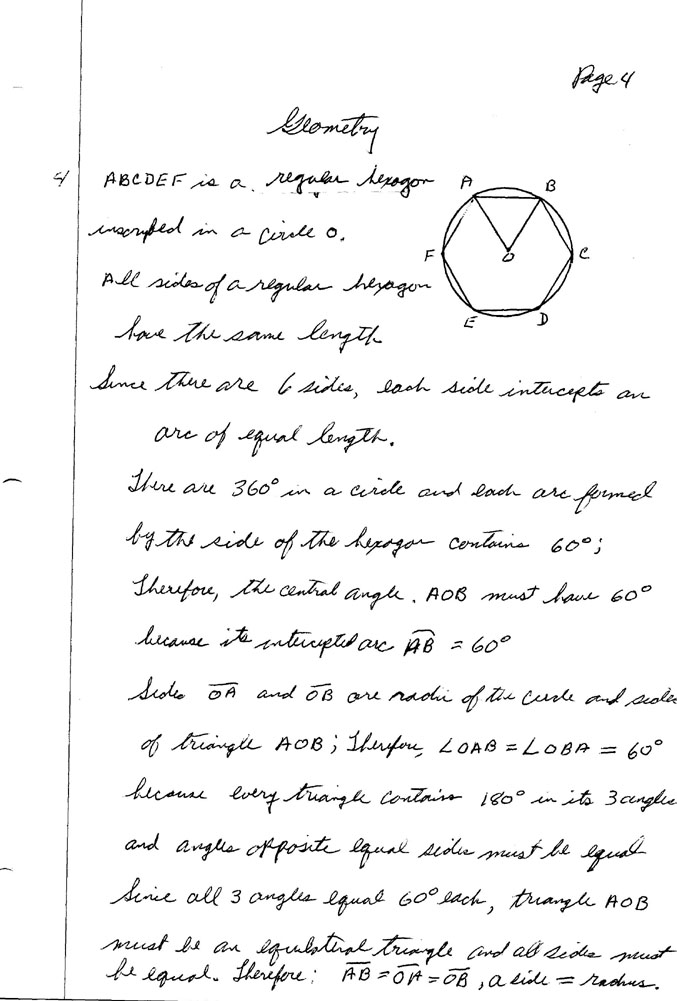 Page 4
Geometry
4/ ABCDEF is a regular hexagon
inscribed in a circle O.
A B
F O C
E D
All sides of a regular hexagon
have the same length
Since there are 6 sides, each side intercepts an
arc of equal length.
There are 360° in a circle and each arc formed
by the side of the hexagon contains 60°;
Therefore, the central angle. AOB must have 60°
because its intercepted arc A͡B = 60°
Sides O̅A̅ and O̅B̅ are radii of the circle and sides
of triangle AOB; Therefore, ∠OAB = ∠OBA = 60°
because every triangle contains 180° in its 3 angles
and angles opposite equal sides must be equal
Since all 3 angles equal 60° each, triangle AOB
must be an equilateral triangle and all sides must
be equal. Therefore: A̅B̅ = O̅A̅ = O̅B̅, a side = radius.